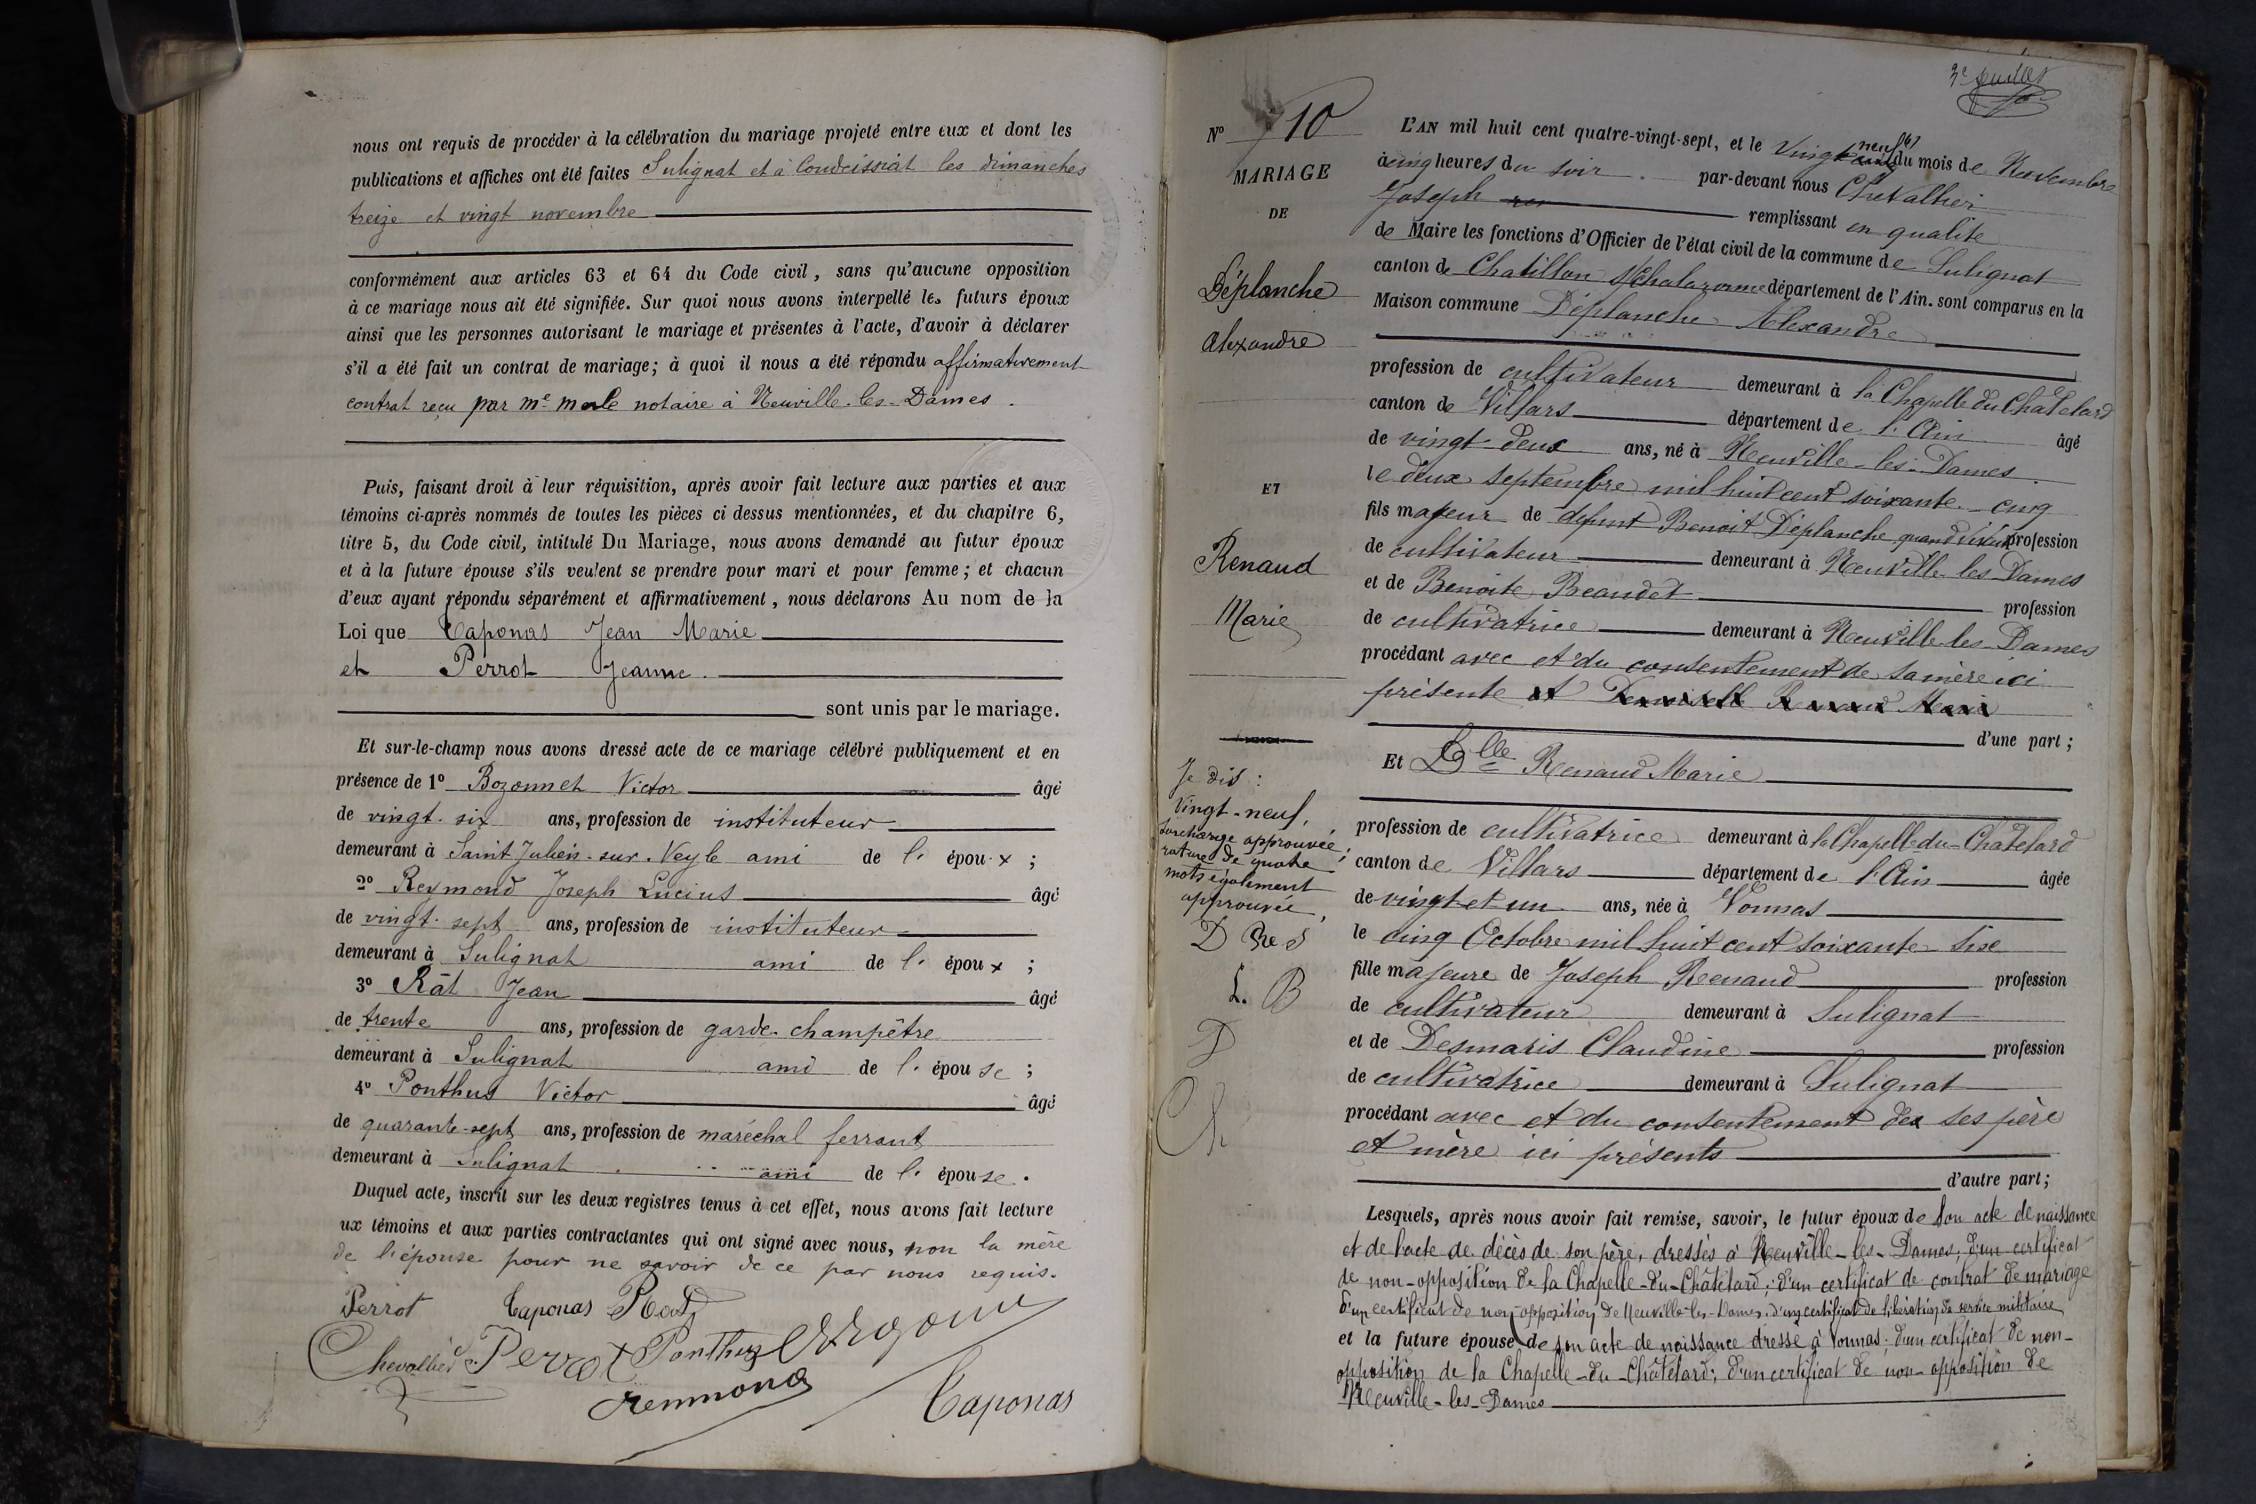 nous ont requis de procéder à la célébration du mariage projeté entre eux et dont les
publications et affiches ont été faites Sulignat et à Condeissiat les dimanches
treize et vingt novembre
conformément aux articles 63 et 64 du Code civil, sans qu'aucune opposition
à ce mariage nous ait été signifiée. Sur quoi nous avons interpellé les futurs époux
ainsi que les personnes autorisant le mariage et présentes à l'acte, d'avoir à déclarer
s'il a été fait un contrat de mariage; à quoi il nous a été répondu affirmativement
contrat reçu par me Merle notaire à Neuville-les-Dames.
Puis, faisant droit à leur réquisition, après avoir fait lecture aux parties et aux
témoins ci-après nommés de toutes les pièces ci dessus mentionnées, et du chapitre 6,
titre 5, du Code civil, intitulé Du Mariage, nous avons demandé au futur époux
et à la future épouse s'ils veulent se prendre pour mari et pour femme; et chacun
d'eux ayant répondu séparément et affirmativement, nous déclarons Au nom de la
Loi que Caponas Jean Marie
et Perrot Jeanne.
sont unis par le mariage.
Et sur-le-champ nous avons dressé acte de ce mariage célébré publiquement et en
présence de 1o Bozonnet Victor âgé
de vingt-six ans, profession de instituteur
demeurant à Saint Julien-sur-Veyle ami de l' épou x ;
2o Reymond Joseph Lucius âgé
de vingt-sept ans, profession de instituteur
demeurant à Sulignat ami de l' épou x ;
3o Rât Jean âgé
de trente ans, profession de garde-champêtre
demeurant à Sulignat ami de l' épou se ;
4o Ponthus Victor âgé
de quarante-sept ans, profession de maréchal ferrant
demeurant à Sulignat ami de l' épou se.
Duquel acte, inscrit sur les deux registres tenus à cet effet, nous avons fait lecture
ux témoins et aux parties contractantes qui ont signé avec nous, non la mère
de l'épouse pour ne savoir de ce par nous requis.
Perrot Caponas Rat
Chevallier Perrot Ponthus
Caponas
3e feuillet
No 10
MARIAGE
DE
Déplanche
Alexandre
ET
Renaud
Marie
Je dis:
Vingt-neuf,
surcharge approuvée;
rature de quatre
mots également
approuvée,
D Re J
L. B
D
Ch
L'AN mil huit cent quatre-vingt-sept, et le Vingt neuf du mois de Novembre
à cinq heures du soir par-devant nous Chevallier
Joseph remplissant en qualité
de Maire les fonctions d'Officier de l'état civil de la commune de Sulignat
canton de Chatillon s/Chalaronne département de l'Ain. sont comparus en la
Maison commune Déplanche Alexandre
profession de cultivateur demeurant à la Chapelle du Châtelard
canton de Villars département de l'Ain âgé
de vingt deux ans, né à Neuville-les-Dames.
le deux septembre mil huit cent soixante-cinq
fils majeur de défunt Benoit Déplanche quand vivait profession
de cultivateur demeurant à Neuville-les-Dames
et de Benoite Beaudet profession
de cultivatrice demeurant à Neuville-les-Dames
procédant avec et du consentement de sa mère ici
présente et Demoiselle Renaud Marie
d'une part;
Et Dlle Renaud Marie
profession de cultivatrice demeurant à la Chapelle-du-Châtelard
canton de Villars département de l'Ain âgée
de vingt et un ans, née à Vonnas
le cinq Octobre mil huit cent soixante-six
fille majeure de Joseph Renaud profession
de cultivateur demeurant à Sulignat
et de Desmaris Claudine profession
de cultivatrice demeurant à Sulignat
procédant avec et du consentement de ses père
et mère ici présents
d'autre part;
Lesquels, après nous avoir fait remise, savoir, le futur époux de son acte de naissance
et de l'acte de décès de son père, dressés à Neuville-les-Dames, d'un certificat
de non-opposition de la Chapelle-du-Châtelard; d'un certificat de contrat de mariage
d'un certificat de non-opposition de Neuville-les-Dames, d'un certificat de libération du service militaire
et la future épouse de son acte de naissance dressé à Vonnas; d'un certificat de non-
opposition de la Chapelle-du-Châtelard; d'un certificat de non-opposition de
Neuville-les-Dames